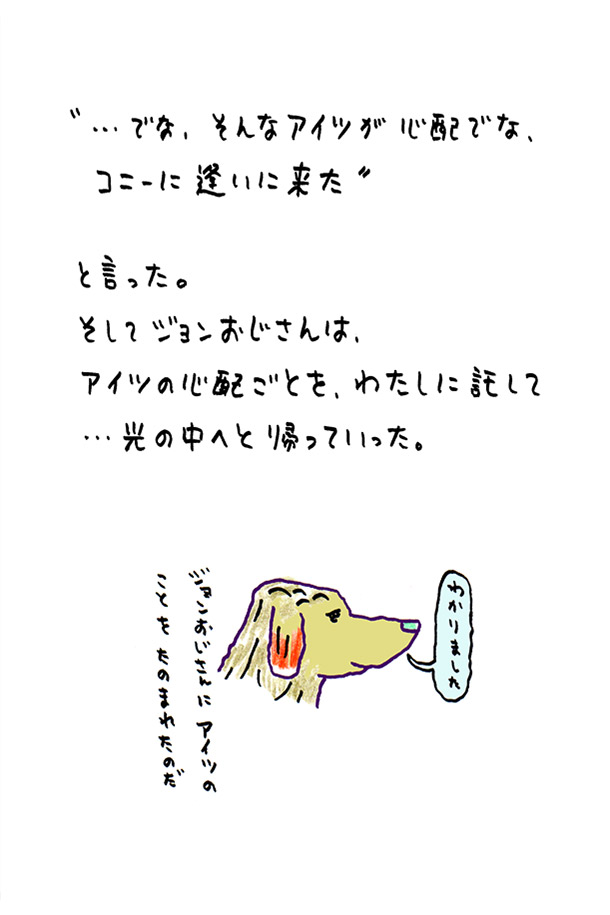 〝…でな、そんなアイツが心配でな、
コニーに逢いに来た〟
と言った。
そしてジョンおじさんは、
アイツの心配ごとを、わたしに託して
…光の中へと帰っていった。
わかりました
ジョンおじさんにアイツの
ことをたのまれたのだ